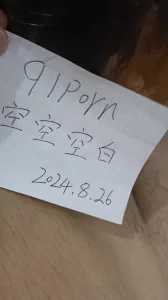 91Porn
空空空白
2024.8.26